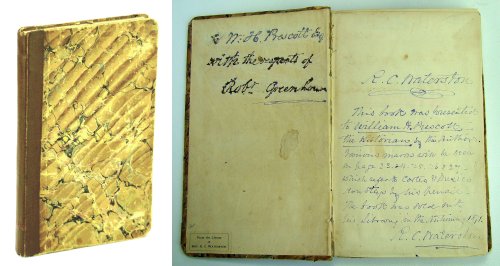 To Wm. H. Prescott Esq
with the regards of
Robt. Greenhow
R. C. Waterston
This book was presented
to William H. Prescott
the historian, by the Author.
Various marks will be seen
on page 23. 24. 25.
which refer to Cortes & Mexico
by his pencil.
The book was sold with
his library in the Autumn, 1871.
R. C. Waterston
REV. R. C. WATERSTON